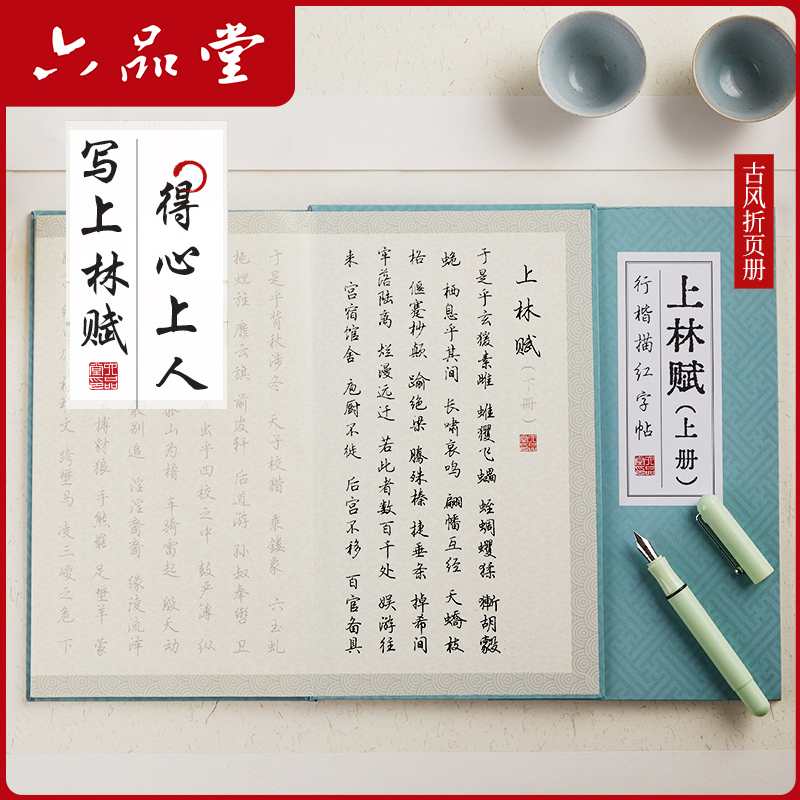 六品堂
写上林赋
得心上人
古风折页册
上林赋(上册)
行楷描红字帖
上林赋(下册)
于是乎玄猨素雌 蜼玃飞蠝 蛭蜩蠼猱 獑胡豰
蛫 栖息乎其间 长啸哀鸣 翩幡互经 夭蟜枝
格 偃蹇杪颠 踰绝梁 腾殊榛 捷垂条 掉希间
牢落陆离 烂漫远迁 若此者数百千处 娱游往
来 宫宿馆舍 庖厨不徙 后宫不移 百官备具
于是乎背秋涉冬 天子校猎 乘镂象 六玉虬
拖蜺旌 靡云旗 前皮轩 后道游 孙叔奉辔 卫
出乎四校之中 鼓严簿 纵
泰山为橹 车骑雷起 殷天动
别追 淫淫裔裔 缘陵流泽
搏豺狼 手熊罴 足壄羊 蒙
文 跨壄马 凌三嵕之危 下